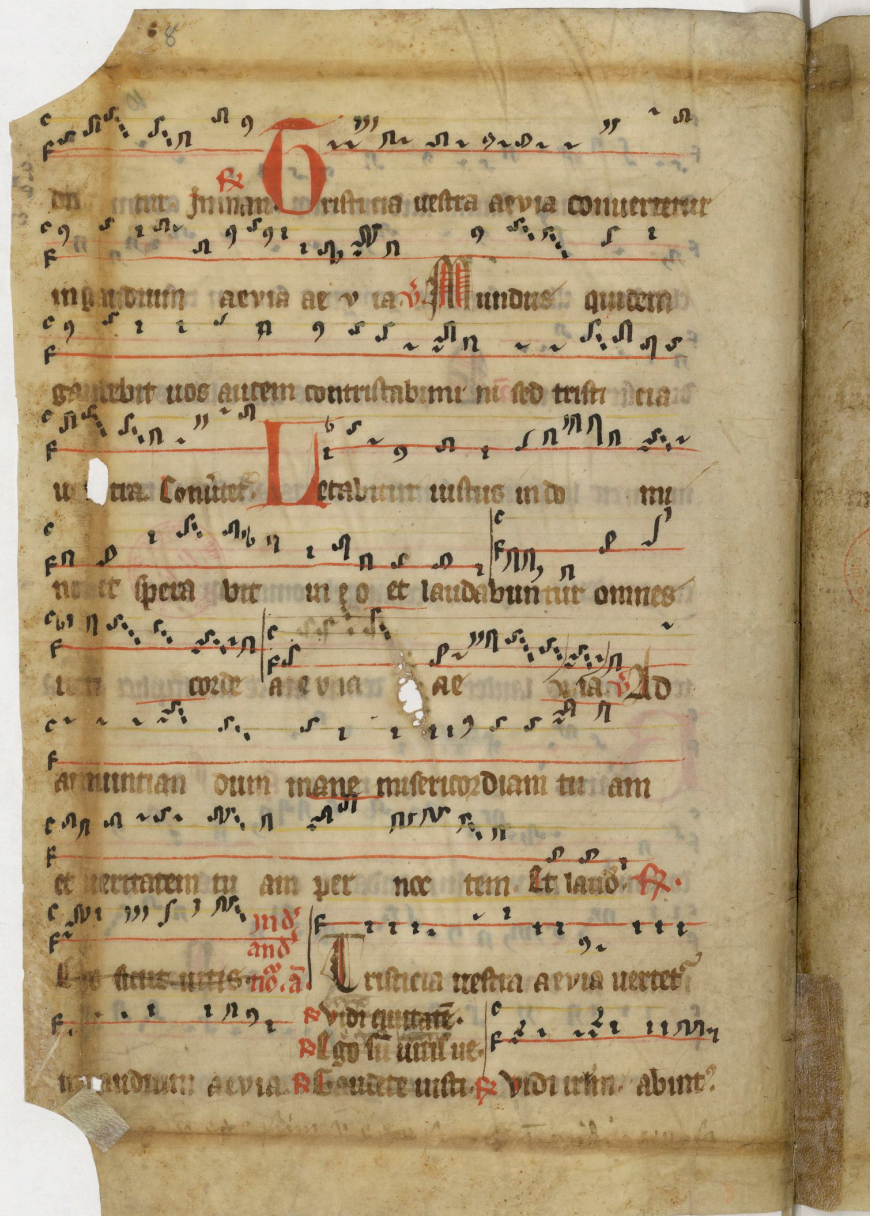 8
tur In man. ℟ Tristicia uestra aevia conuertetur
in gaudium aevia ae v ia ℣ Mundus quidem
gaudebit uos autem contristabimi ni sed tristi cia
uestra. Conu̅tet̅. Letabitur iustus in do mi
no et spera bit in e o et laudabuntur omnes
corde a e v ia ae via ℣ Ad
annuntian dum mane misericordiam tu am
et ueritatem tu am per noc tem Et laud̅. ℟.
Ego sicut uitis Tristicia uestra aevia uertet̅
℟ Vidi ciuitatē.
℟ Ego sū uitis ue.
in gaudium aevia. ℟ Gaudete iusti. ℟ Vidi irlm. abint.